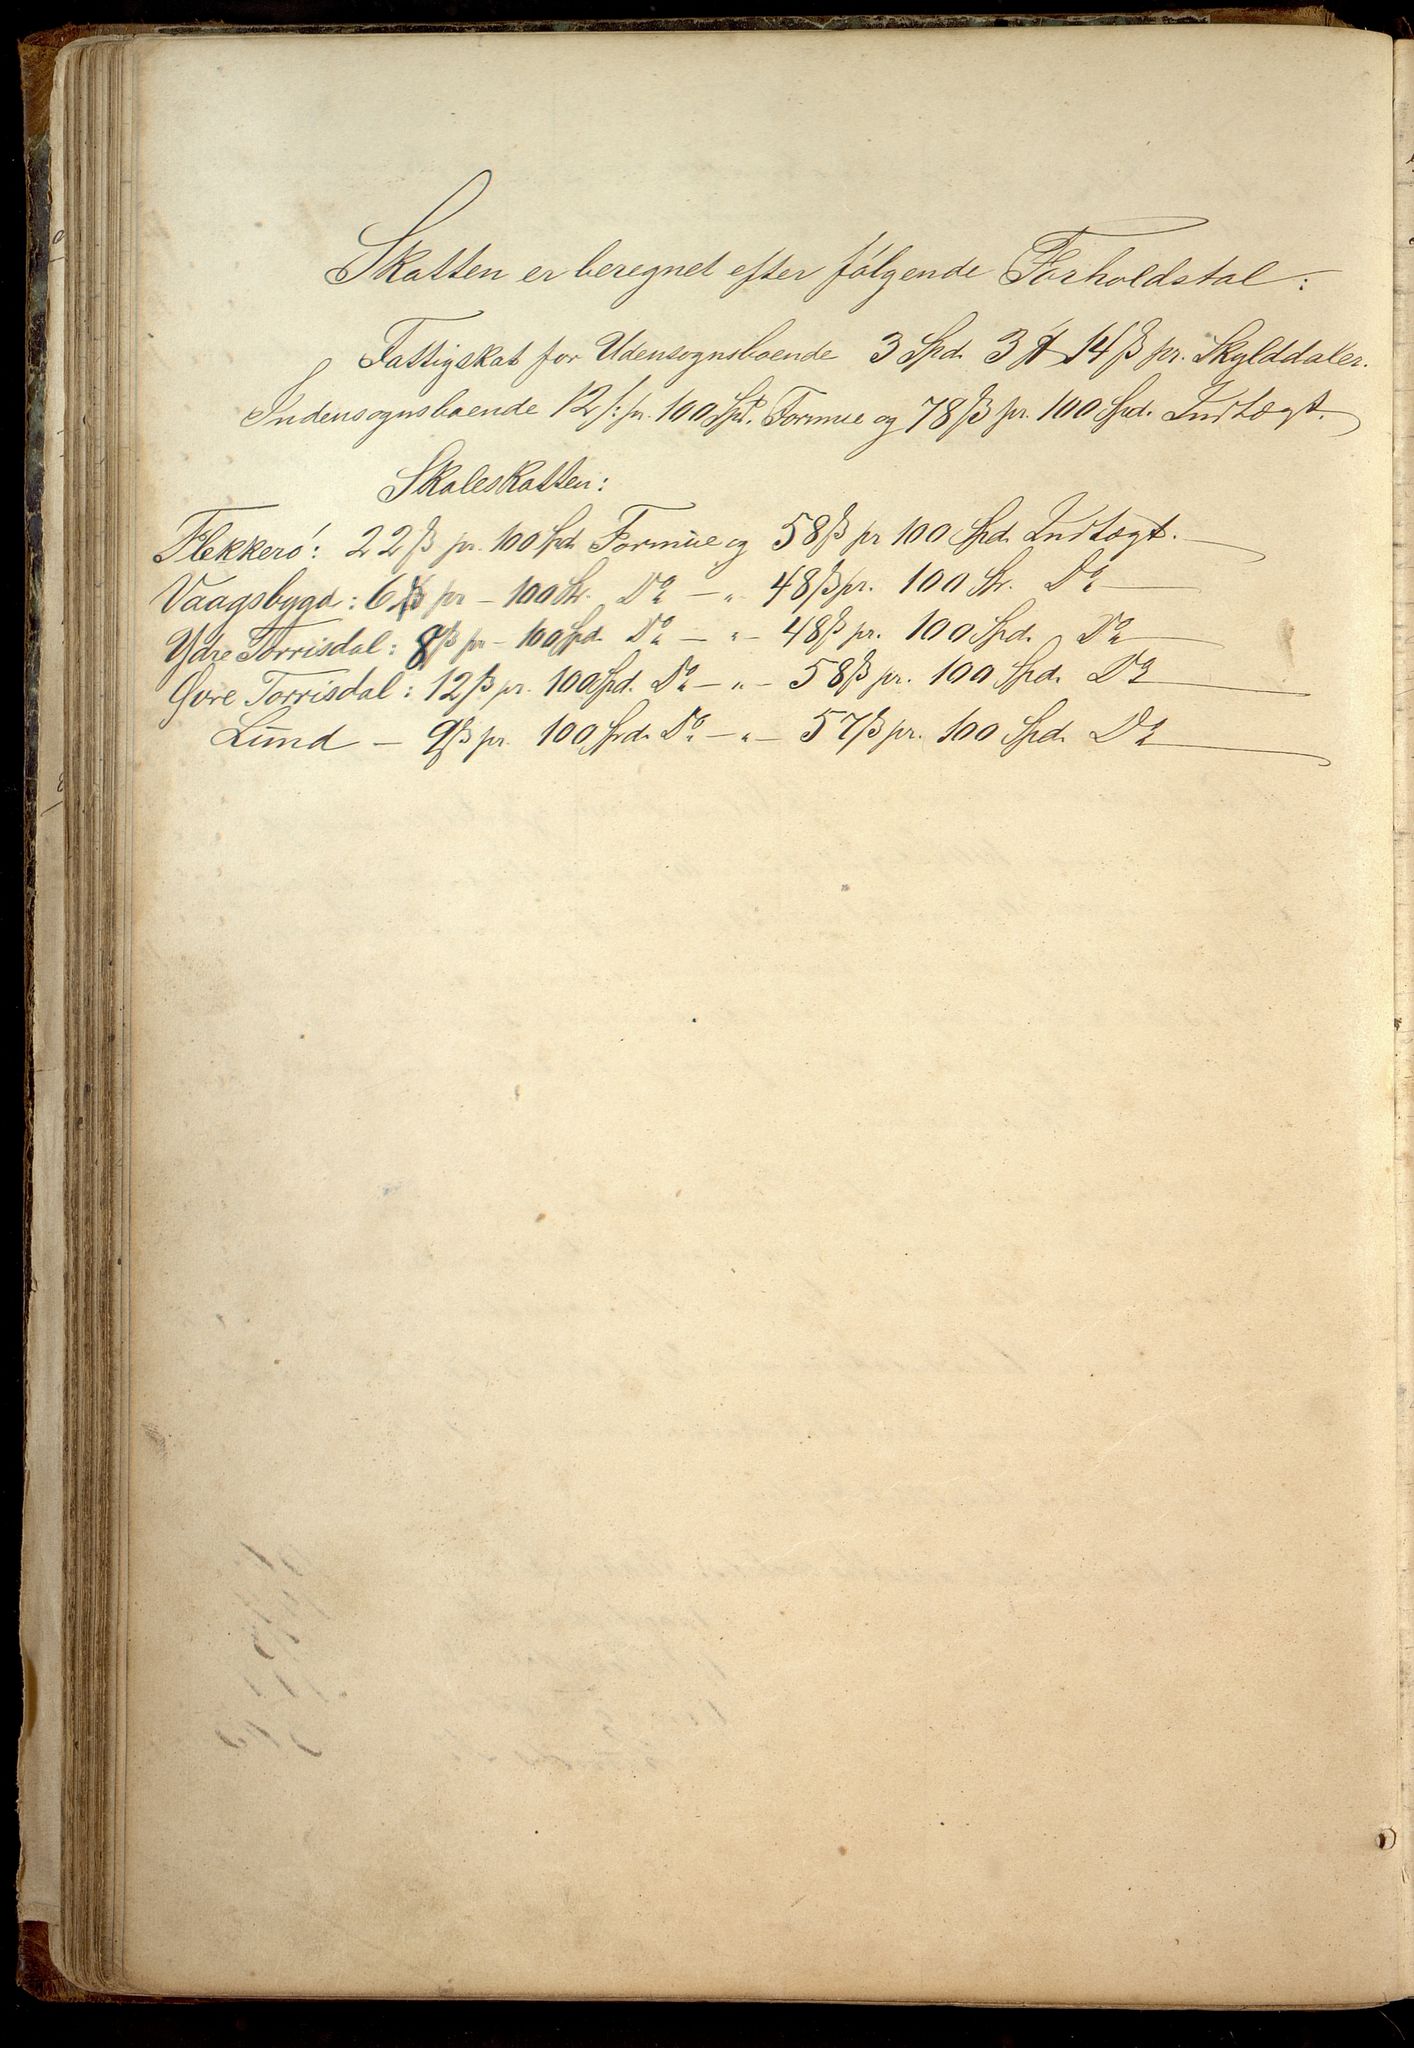 Skatten er beregnet efter følgende Forholdstal:
Fattigskat for Udensognsboende 3 Spd. 3 ₰ 14 ß pr. Skylddaler.
Indensognsboende 12 ß pr. 100 Spd. Formue og 78 ß pr. 100 Spd. Indtægt.
Skoleskatten:
Flekkerö: 22 ß pr. 100 Spd. Formue og 58 ß pr 100 Spd. Indtægt.
Vaagsbygd: 6 ß pr – 100 Do – " 48 ß pr. 100 Do
Ydre Torrisdal: 8 ß pr – 100 Spd. Do – " – 48 ß pr. 100 Spd. Do
Øvre Torrisdal: 12 ß pr. 100 Spd. Do – " – 58 ß pr. 100 Spd. Do
Lund – 9 ß pr. 100 Spd. Do – " – 57 ß pr. 100 Spd. Do